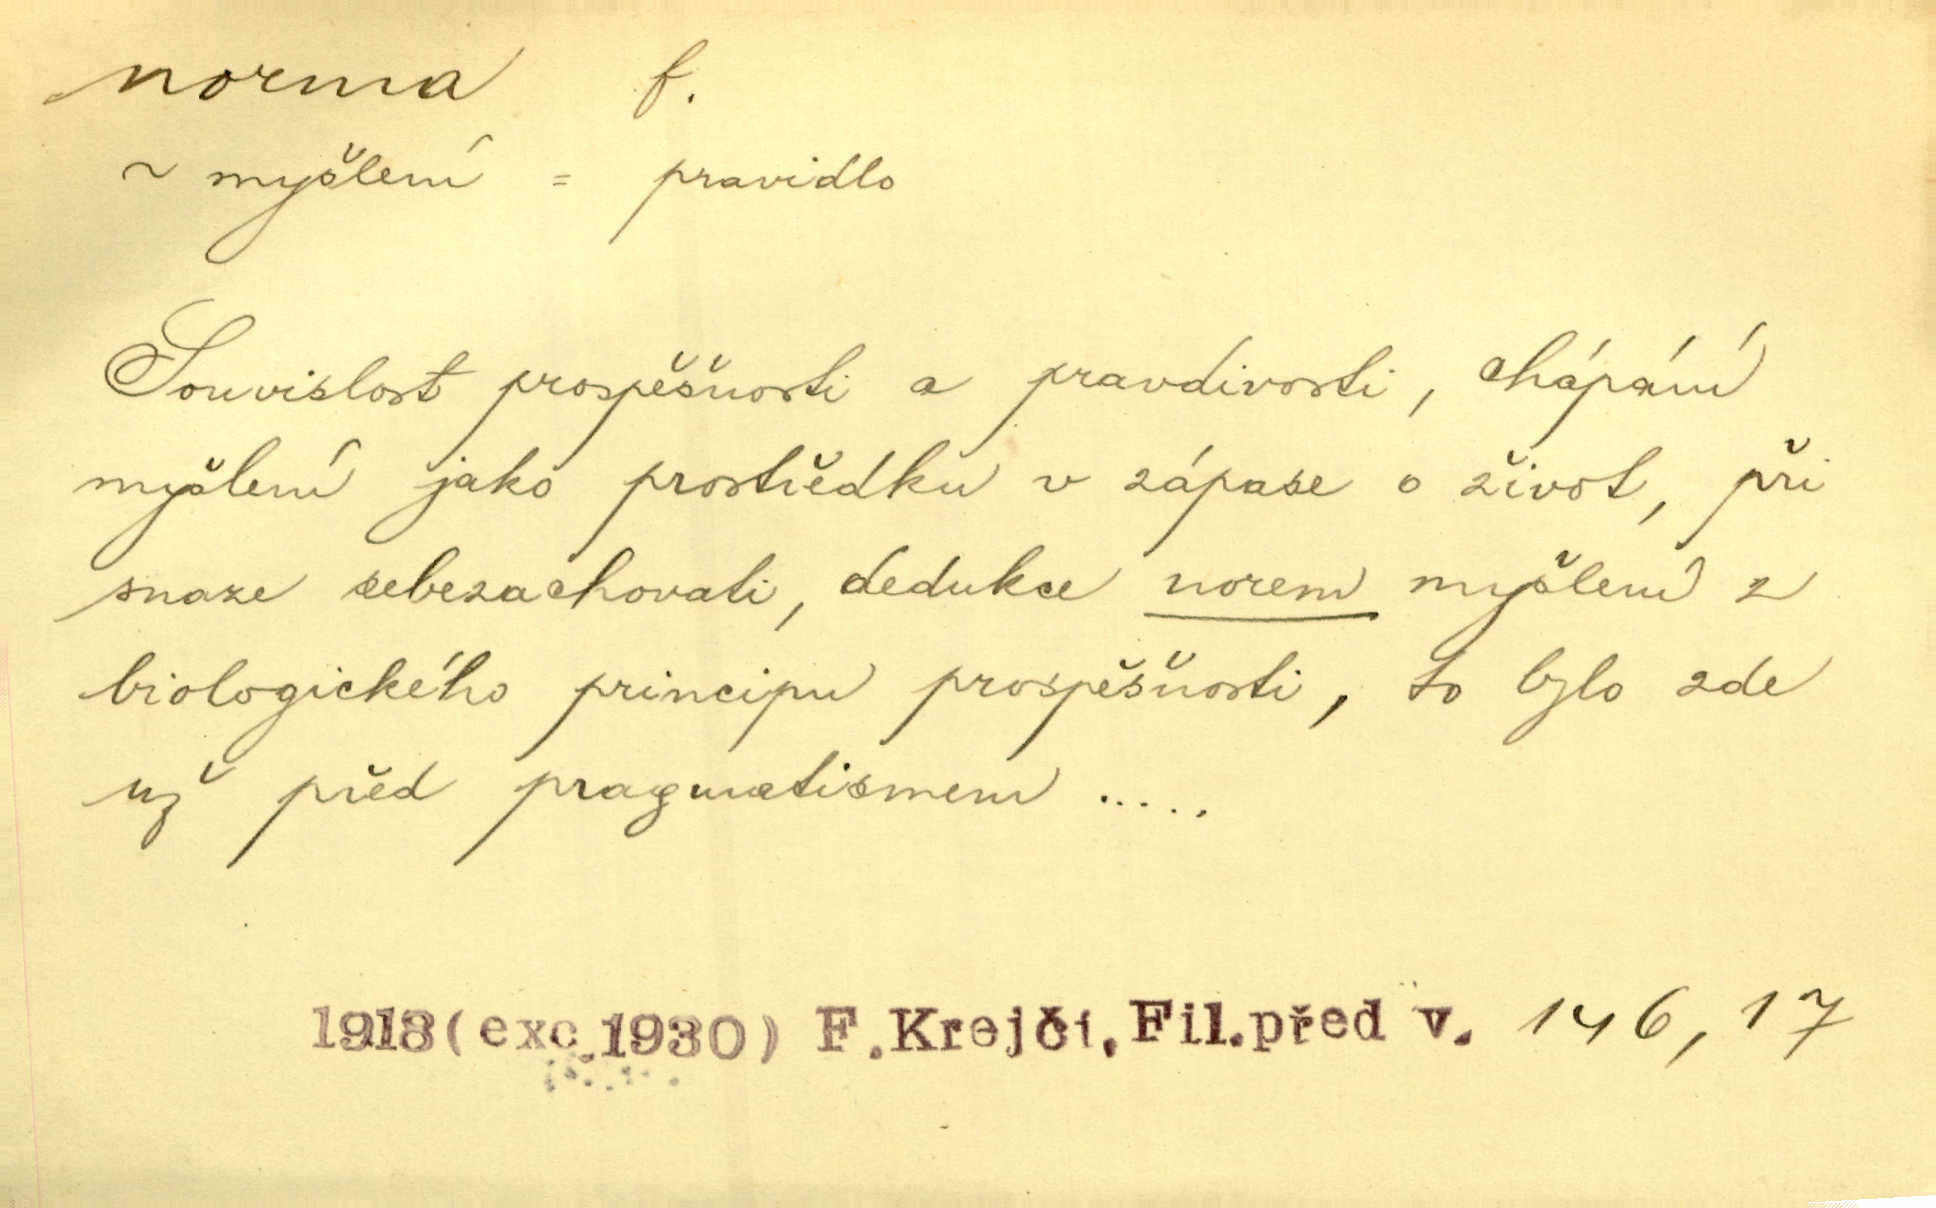 norma f.
~ myšlení = pravidlo
Souvislost prospěšnosti a pravdivosti, chápání
myšlení jako prostředku v zápase o život, při
snaze sebezachovati, dedukce norem myšlení z
biologického principu prospěšnosti, to bylo zde
už před pragmatismem .....
1918 (exc. 1930) F. Krejčí, Fil. před v. 146, 17